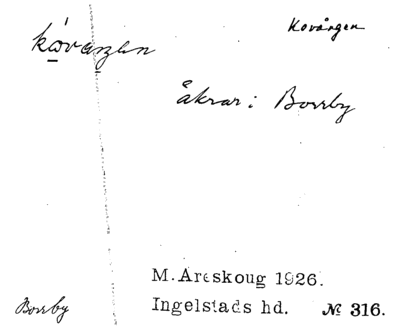 Kovången
kòvaŋen
åkrar i Borrby
M. Areskoug 1926.
Borrby
Ingelstads hd. № 316.